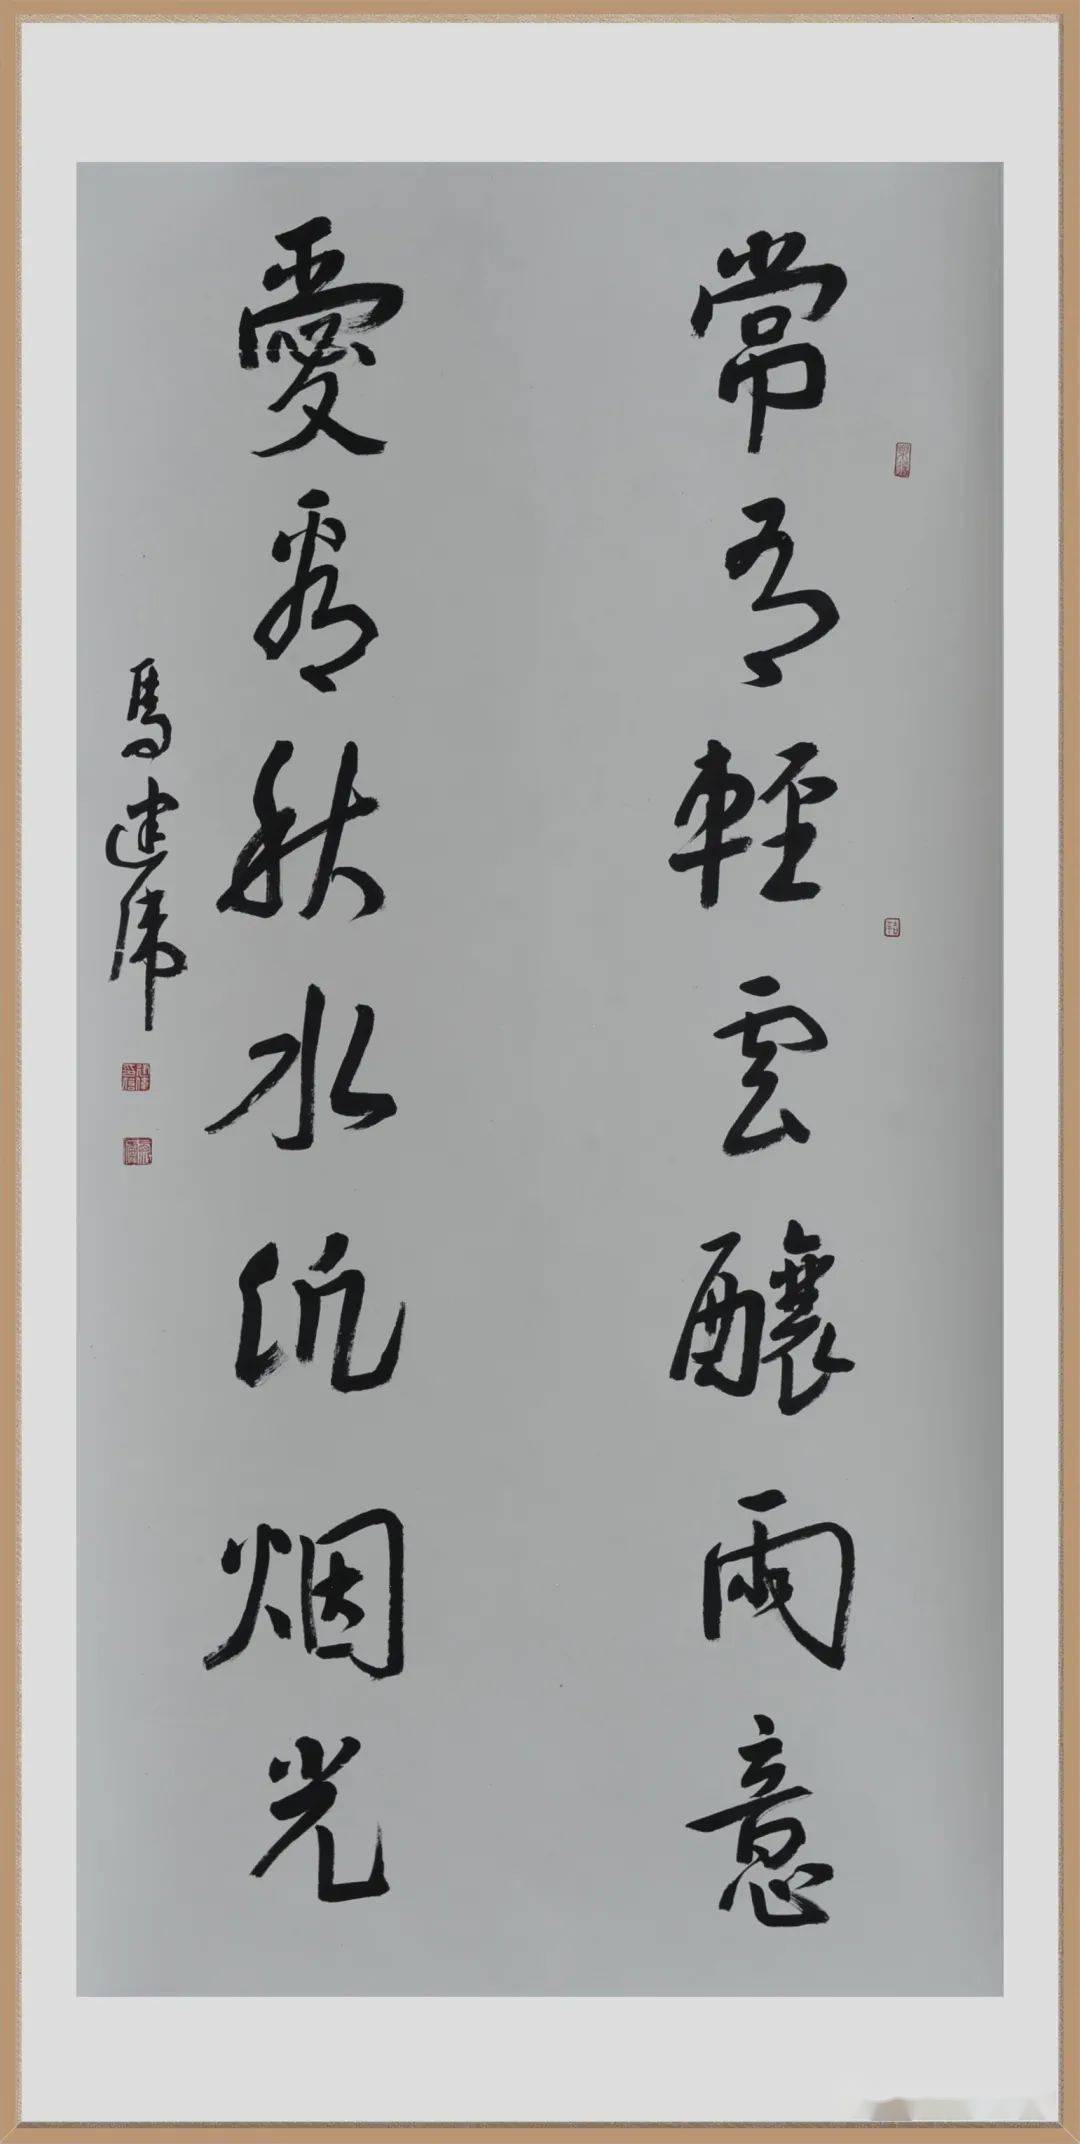 常有輕雲釀雨意
愛看秋水汎烟光
馬建偉